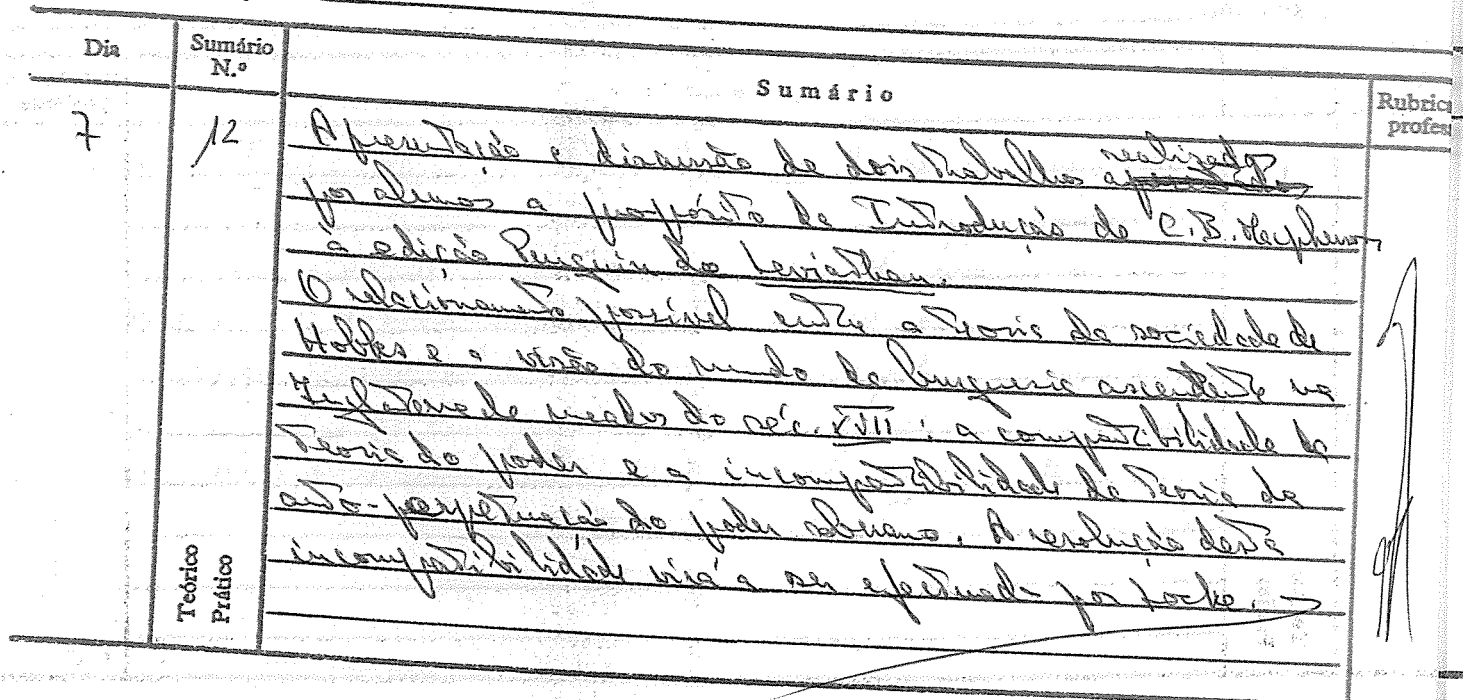 Dia
Sumário
N.º
Sumário
Rubric
profes
7
12
Apresentação e discussão de dois trabalhos realizados
por alunos a propósito da Introdução de C. B. Macpherson
à edição Penguin do Leviathan.
O relacionamento possível entre a teoria da sociedade de
Hobbes e a visão do mundo da burguesia ascendente na
Inglaterra de meados do séc. XVII: a compatibilidade da
teoria do poder e a incompatibilidade da teoria da
auto-perpetuação do poder soberano. A resolução desta
incompatibilidade virá a ser efectuada por Locke. —
Teórico
Prático